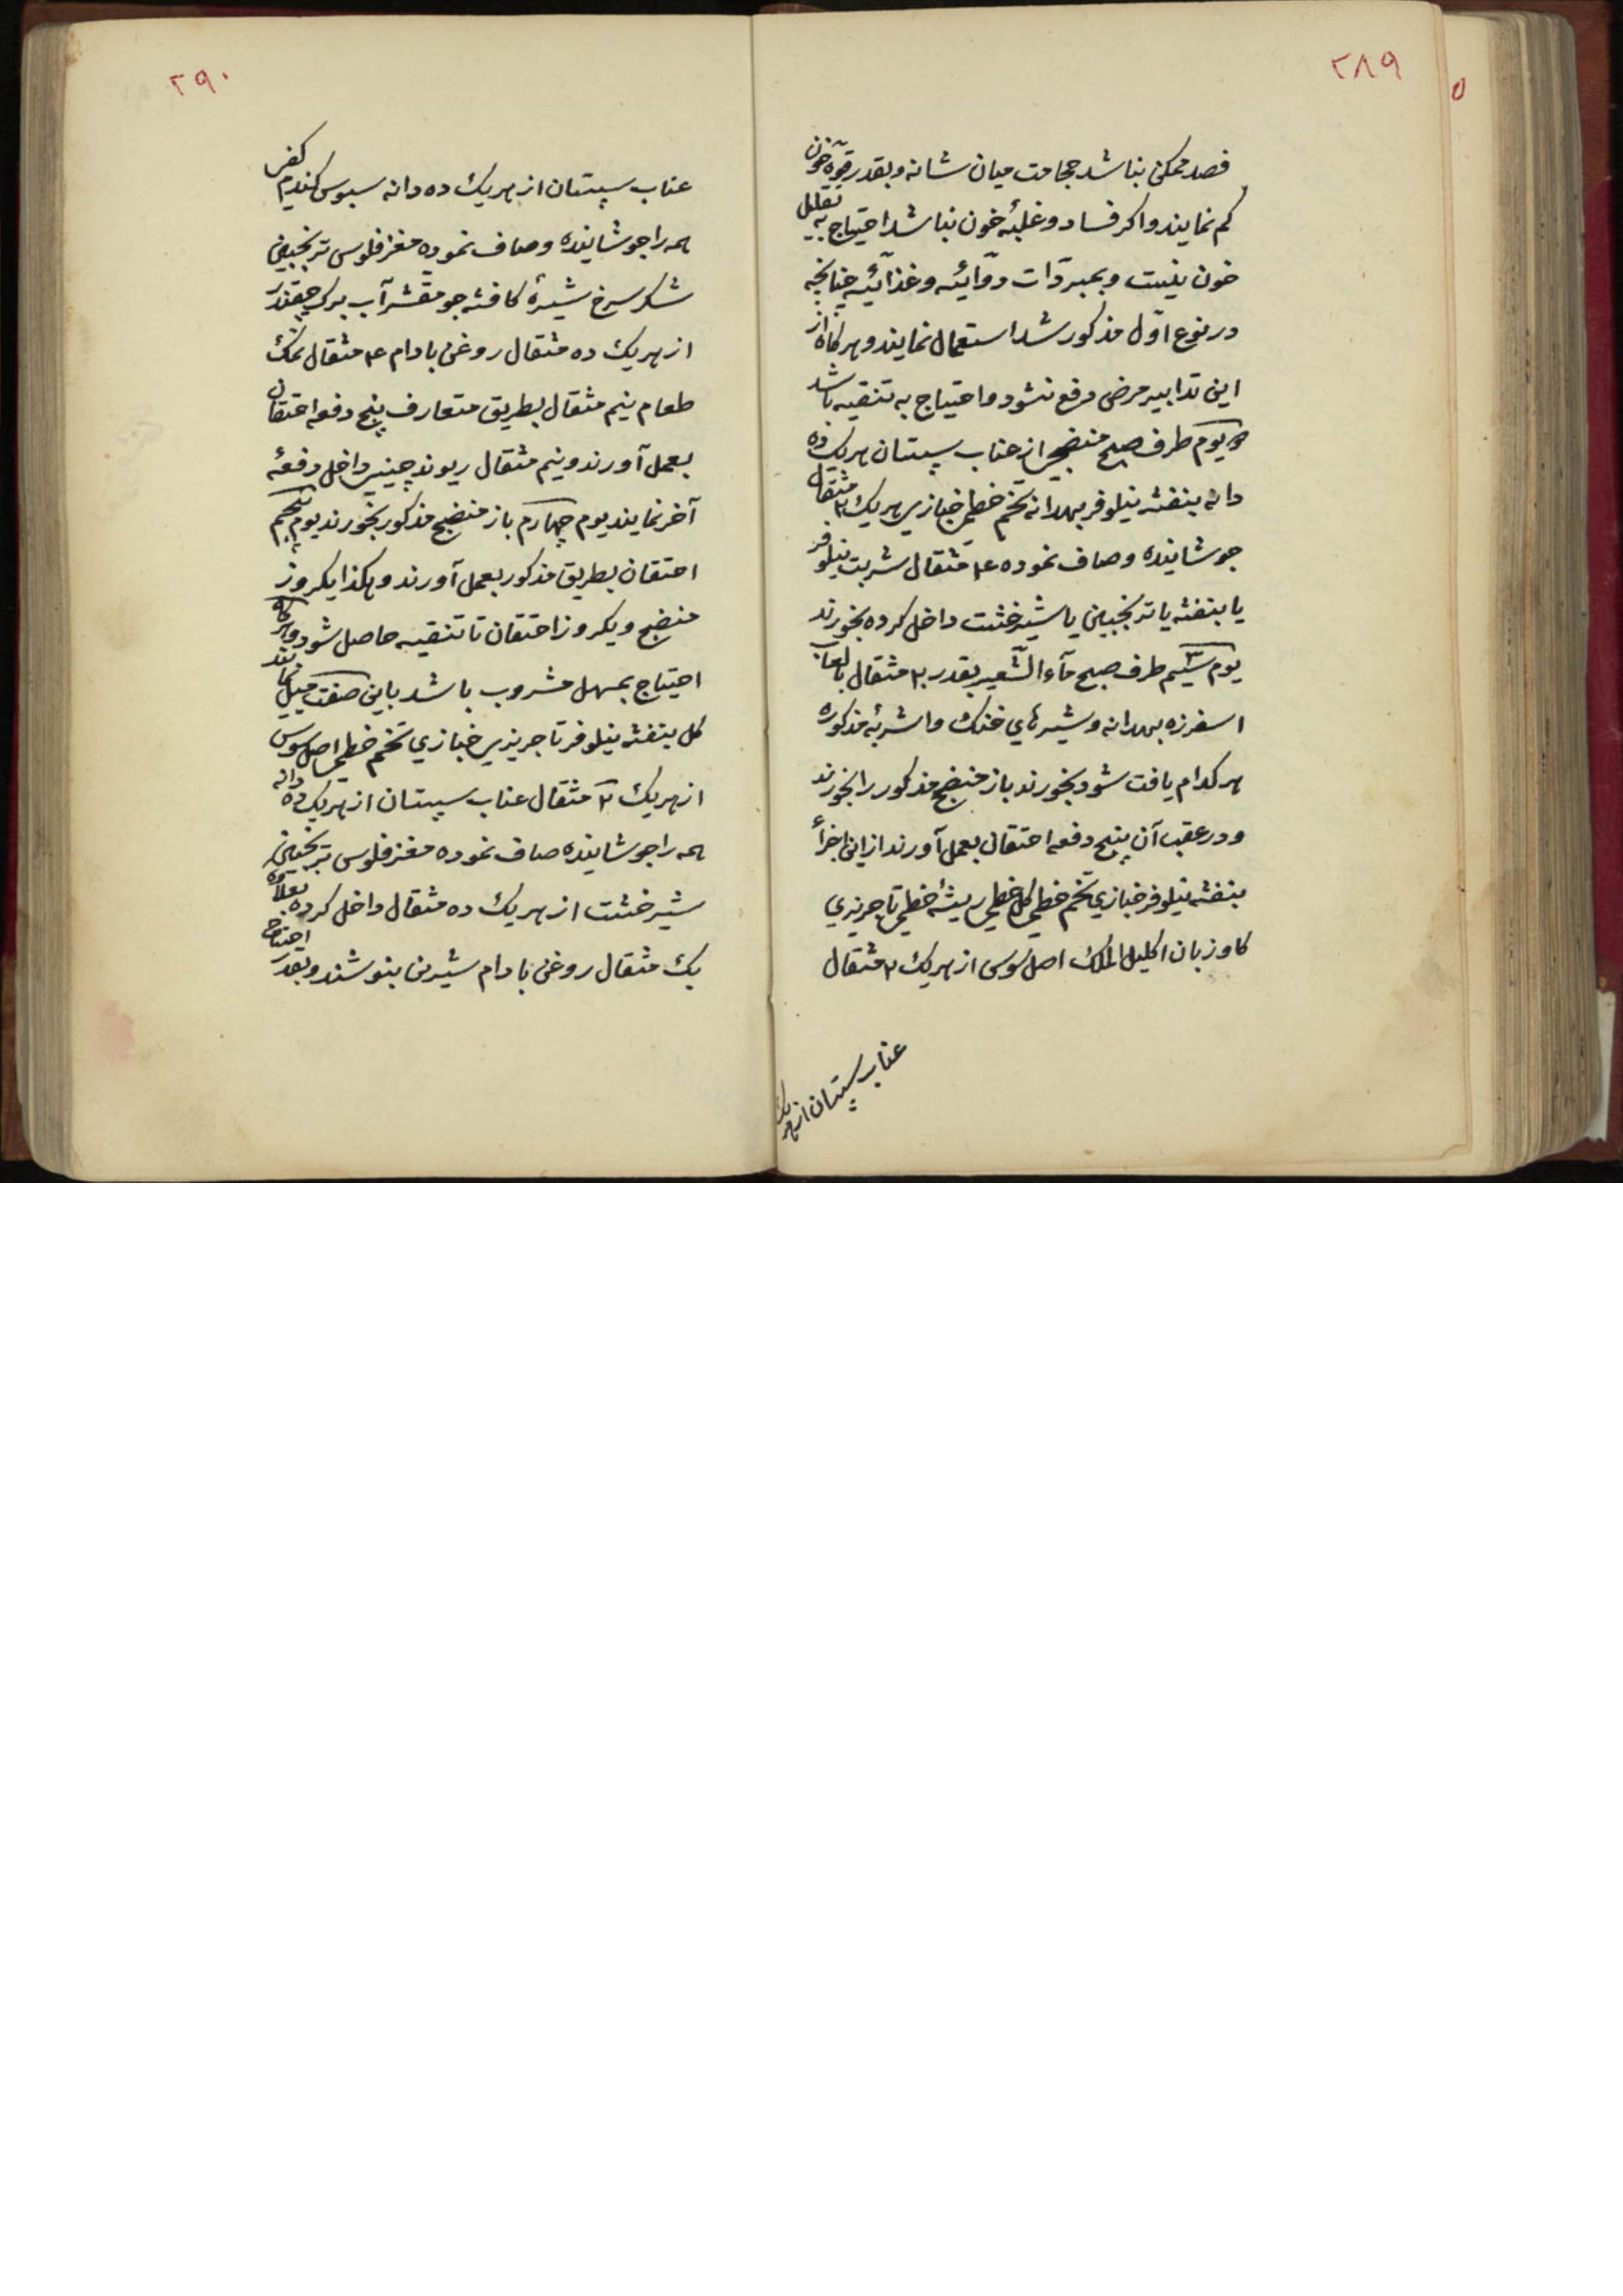 ٢٨٩
فصد ممکن نباشد حجامت میان شانه و بقدر قوّه خون
کم نمایند و اکر فساد و غلبهٔ خون نباشد احتیاج به تقلیل
خون نیست و بمبرّدات دوائیّه و غذائیّه چنانچه
در نوع اوّل مذکور شد استعمال نمایند و هرکاه از
این تدابیر مرض مرفع نشود و احتیاج به تنقیه باشد
یوم طرف صبح منضجی از عناب سپستان هریک ده
دانه بنفشه نیلوفر بهدانه تخم خطمی خبازی هریک ٢ مثقال
جوشانیده و صاف نموده ۴ مثقال شربت نیلوفر
یا بنفشه یا ترنجبین یا شیرخشت داخل کرده بخورند
یوم سیّم طرف صبح مآء الشّعیر بقدر ٢٠ مثقال با لعاب
اسفرزه بهدانه و شیرهای خنک و اشربهٔ مذکوره
هر کدام یافت شود بخورند باز منضج مذکور را بخورند
و در عقب آن پنج دفعه احتقان بعمل آورند از این اجزأ
بنفشه نیلوفر خبازی تخم خطمی کل خطمی ریشهٔ خطمی تاجریزی
کاوزبان اکلیل الملک اصل سوس از هریک ٢ مثقال
عناب سپستان از هریک
٢٩٠
عناب سپستان از هریک ده دانه سبوس کندم کفی
همه را جوشانیده و صاف نموده مغز فلوس ترنجبین
شکر سرخ شیرهٔ کافشه جو مقشر آب برک چقندر
از هریک ده مثقال روغن بادام ۴ مثقال نمک
طعام نیم مثقال بطریق متعارف پنج دفعه احتقان
بعمل آورند و نیم مثقال ریوند چینی داخل دفعهٔ
آخر نمایند یوم چهارم باز منضج مذکور بخورند یوم پنجم
احتقان بطریق مذکور بعمل آورند و هکذا یکروز
منضج و یکروز احتقان تا تنقیه حاصل شود و هرکاه
احتیاج بمسهل مشروب باشد باین صفت میل نمایند
کل بنفشه نیلوفر تاجریزی خبازی تخم خطمی اصل سوس
از هریک ٢ مثقال عناب سپستان از هریک ده دانه
همه را جوشانیده صاف نموده مغز فلوس ترنجبین
شیرخشت از هریک ده مثقال داخل کرده بعلاوه
یک مثقال روغن بادام شیرین بنوشند و بقدر احتیاج